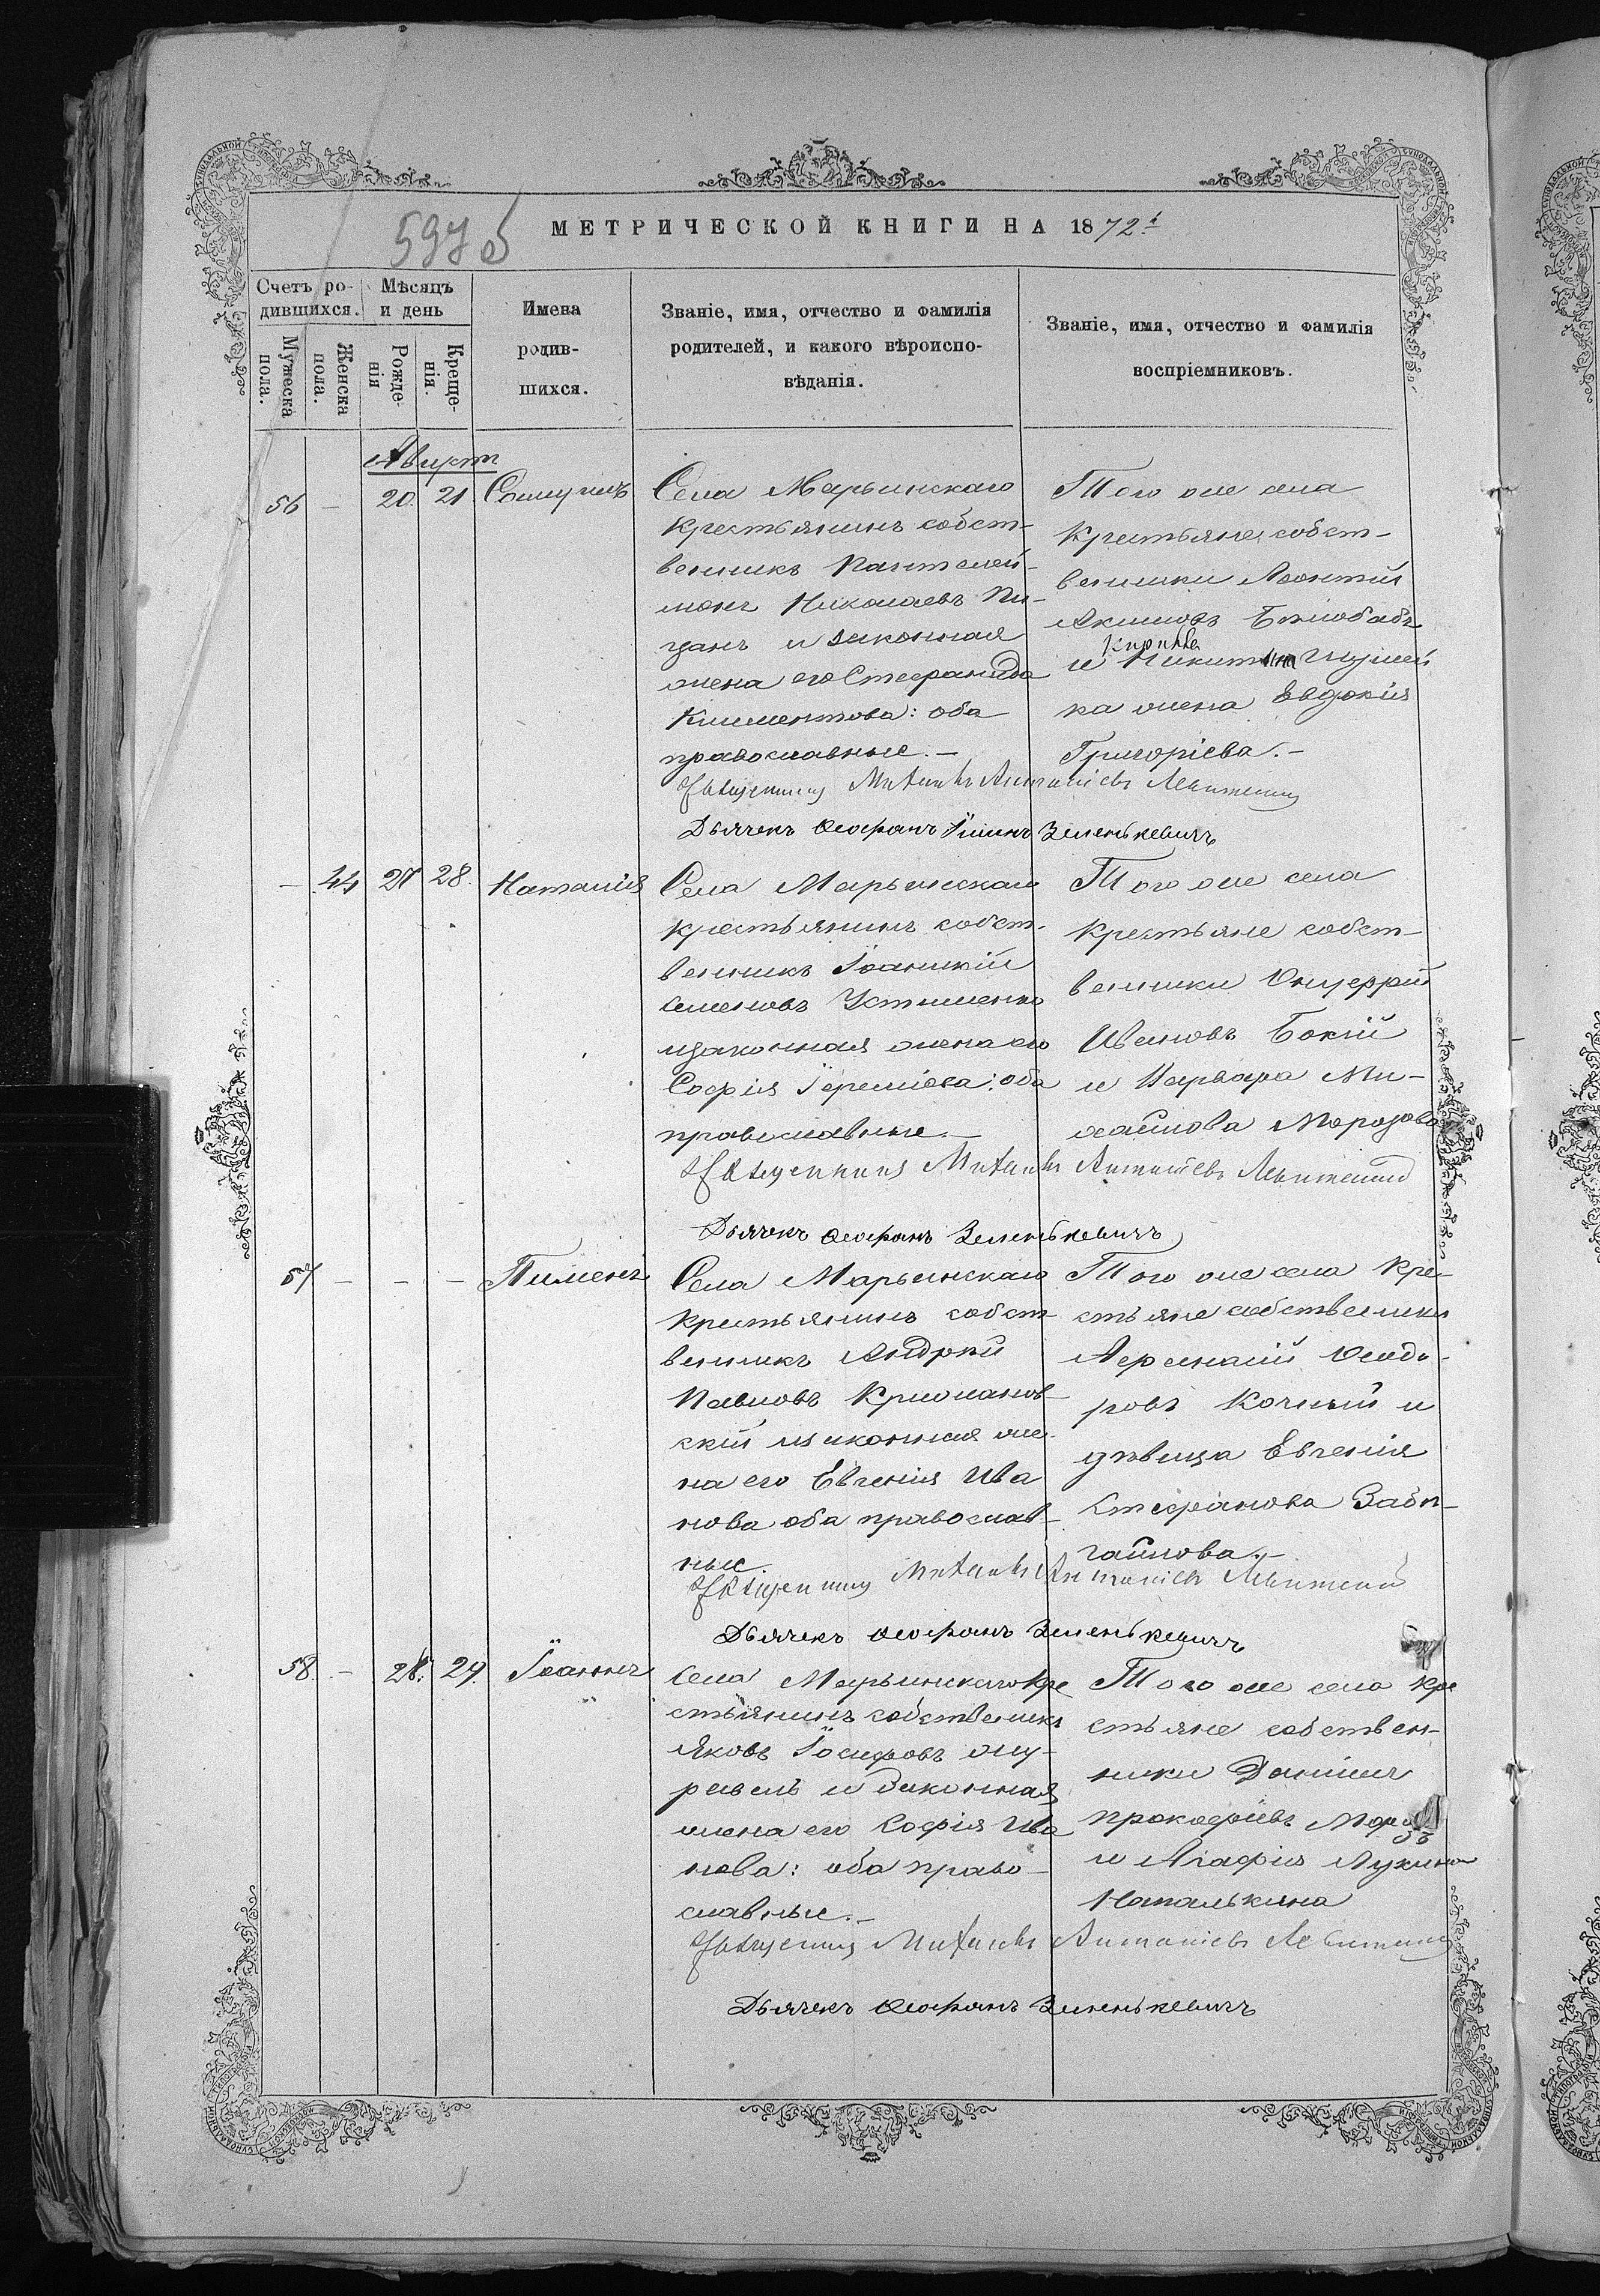 597 б
МЕТРИЧЕСКОЙ КНИГИ НА 1872 г.
Счетъ ро-
дившихся.
Мужеска
пола.
Женска
пола.
Мѣсяцъ
и день
Рожде-
нія
Креще-
нія.
Имена
родив-
шихся.
Званіе, имя, отчество и фамилія
родителей, и какого вѣроиспо-
вѣданія.
Званіе, имя, отчество и фамилія
воспріемниковъ.
Августъ
56 - 20. 21 Самуилъ
Села Марьинскаго
крестьянинъ собст-
венникъ Пантелей-
монъ Николаевъ Пи-
цанъ и законная
жена его Стефанида
Климентова: оба
православные. -
Того же села
крестьяне собст-
венники Леонтій
Акимовъ Бѣлобабъ
и Никит
ка жена Евдокія
Григоріева. -
Священникъ Михаилъ Антоніевъ
Дьячекъ Ѳеофанъ Зеленькевичъ
- 44 27 28. Наталія
Села Марьинскаго
крестьянинъ собст-
венникъ Іоанникій
Семеновъ Устименко
изаконная жена его
Софія Іереміева: оба
православные. -
Того же села
крестьяне собст-
венники Онуфрій
Ивановъ Бокій
и Варвара Ми-
хаилова Морозова
Священникъ Михаилъ Антоніевъ
Дьячекъ Ѳеофанъ Зеленькевичъ
57 - - - Пименъ
Села Марьинскаго
крестьянинъ собст-
венникъ Андрей
Павловъ Крижанов-
скій изаконная же-
на его Евгенія Ива
нова оба православ-
ные.
Того же села кре-
стьяне собственники
Ѳеодо-
ровъ и
дѣвица Евгенія
Стефанова
Священникъ Михаилъ Антоніевъ
Дьячекъ Ѳеофанъ Зеленькевичъ
58. - 28. 29. Іоаннъ
Села Марьинскаго кре
стьянинъ собственикъ
Яковъ Іосифовъ Жу-
равель и законная
жена его Софія Ива
нова: оба право-
славные. -
Того же села кре
стьяне собствен-
ники Даніилъ
Прокофіевъ Морозъ
и Агафія Лукина
Священникъ Михаилъ Антоніевъ
Дьячекъ Ѳеофанъ Зеленькевичъ